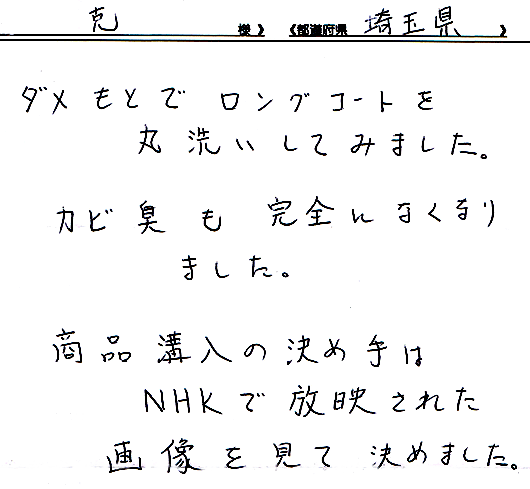 克 様 》 《都道府県 埼玉県 》
ダメもとでロングコートを
丸洗いしてみました。
カビ臭も完全になくなり
ました。
商品溝入の決め手は
NHKで放映された
画像を見て決めました。